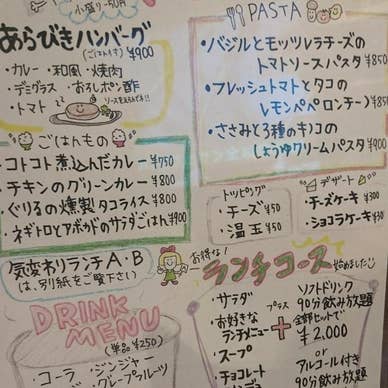 小盛り-50円
あらびきハンバーグ
(ごはん付) ¥900
・カレー ・和風 ・焼肉
・デミグラス ・おろしポン酢
・トマト
ソースをえらんで下さい!!
ごはんもの
・コトコト煮込んだカレー ¥750
・チキンのグリーンカレー ¥800
・ぐりるの燻製タコライス ¥800
・ネギトロとアボカドのサラダごはん ¥900
気変わりランチA・B
は、別紙をご覧下さい
DRINK
MENU
(単品¥250)
・コーラ ・ジンジャー
グレープフルーツ
PASTA
・バジルとモッツレラチーズの
トマトソースパスタ ¥850
・フレッシュトマトとタコの
レモンペペロンチーノ ¥850
・ささみと3種のキノコの
しょうゆクリームパスタ ¥900
トッピング
・チーズ ¥50
・温玉 ¥50
デザート
・チーズケーキ ¥300
・ショコラケーキ ¥300
お得な!
ランチコース
始めました
・サラダ
・お好きな
ランチメニュー
・スープ
・チョコレート
プラス
+
ソフトドリンク
90分飲み放題
全部セットで
¥2,000
or
アルコール付き
90分飲み放題